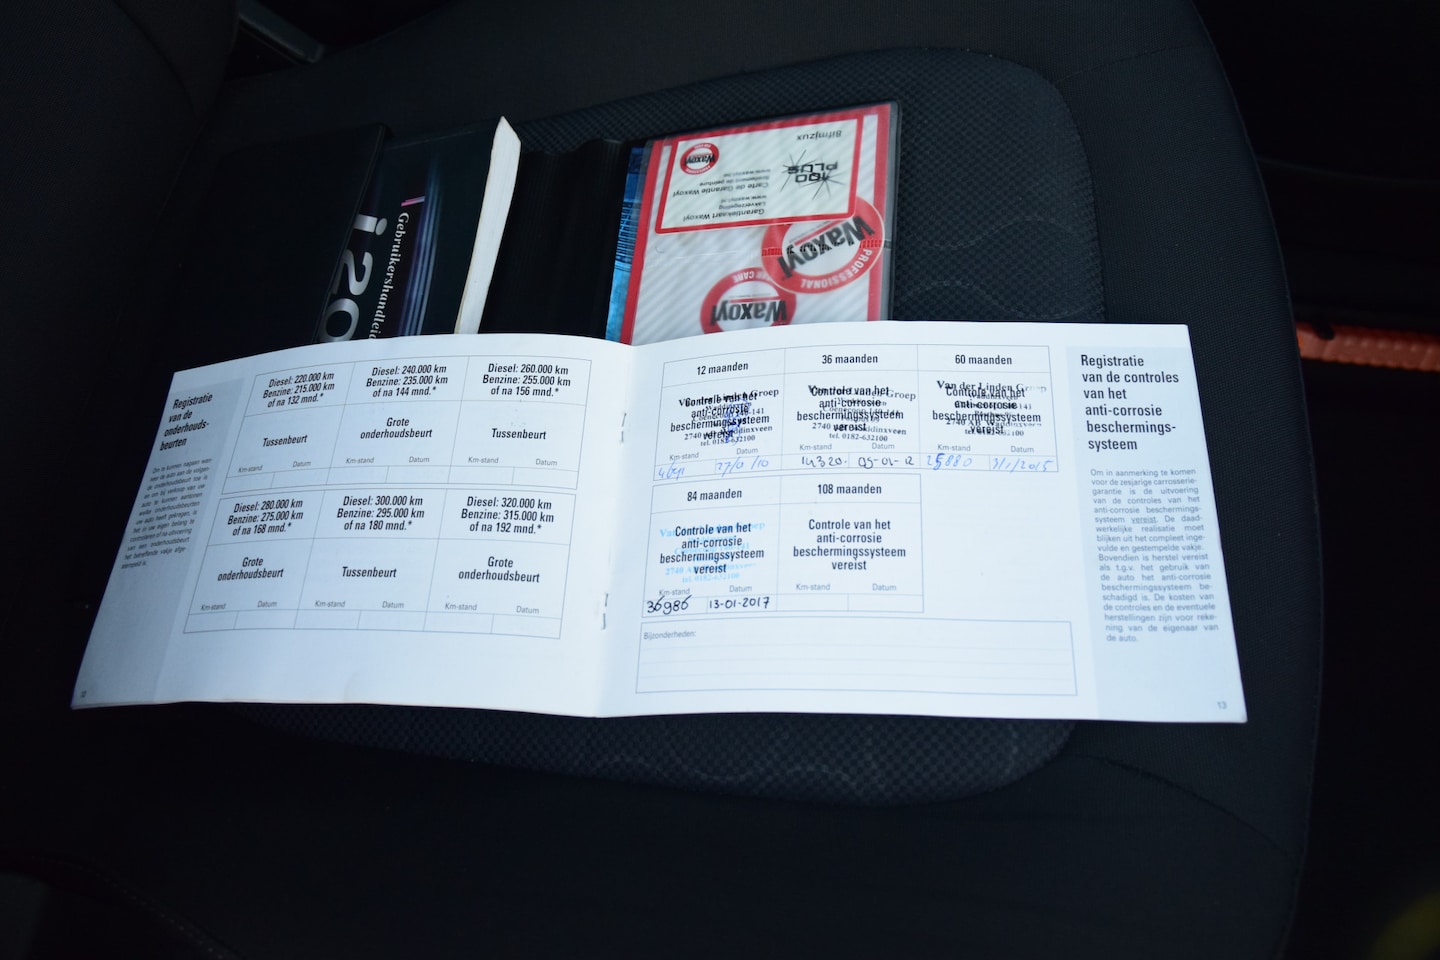 i20
Gebruikershandleid
8ifmjzux
100
PLUS
Waxoyl
Garantiekaart Waxoyl
Lakverzegeling
www.waxoyl.nl
Carte de Garantie Waxoyl
Scellement de peinture
www.waxoyl.be
Waxoyl
PROFESSIONAL
CAR CARE
Waxoyl
Registratie
van de
onderhouds-
beurten
Om te kunnen nagaan wan-
Diesel: 220.000 km
Benzine: 215.000 km
of na 132 mnd.*
Tussenbeurt
Km-stand Datum
Diesel: 240.000 km
Benzine: 235.000 km
of na 144 mnd.*
Grote
onderhoudsbeurt
Km-stand Datum
Diesel: 260.000 km
Benzine: 255.000 km
of na 156 mnd.*
Tussenbeurt
Km-stand Datum
Diesel: 280.000 km
Benzine: 275.000 km
of na 168 mnd.*
Grote
onderhoudsbeurt
Km-stand Datum
Diesel: 300.000 km
Benzine: 295.000 km
of na 180 mnd.*
Tussenbeurt
Km-stand Datum
Diesel: 320.000 km
Benzine: 315.000 km
of na 192 mnd.*
Grote
onderhoudsbeurt
Km-stand Datum
12 maanden
Controle van het
anti-corrosie
beschermingssysteem
vereist
Van der Linden Groep
tel. 0182-632100
Km-stand Datum
36 maanden
Controle van het
anti-corrosie
beschermingssysteem
vereist
Van der Linden Groep
Coenecoop 140-141
2740 AB Waddinxveen
tel. 0182-632100
Km-stand Datum
14320 05-01-12
60 maanden
Controle van het
anti-corrosie
beschermingssysteem
vereist
Van der Linden Groep
2740 AB Waddinxveen
tel. 0182-632100
Km-stand Datum
25880 3/1/2015
84 maanden
Controle van het
anti-corrosie
beschermingssysteem
vereist
tel. 0182-632100
Km-stand Datum
36986 13-01-2017
108 maanden
Controle van het
anti-corrosie
beschermingssysteem
vereist
Km-stand Datum
Bijzonderheden:
Registratie
van de controles
van het
anti-corrosie
beschermings-
systeem
Om in aanmerking te komen
voor de zesjarige carrosserie-
garantie is de uitvoering
van de controles van het
anti-corrosie beschermings-
systeem vereist. De daad-
werkelijke realisatie moet
blijken uit het compleet inge-
vulde en gestempelde vakje.
Bovendien is herstel vereist
als t.g.v. het gebruik van
de auto het anti-corrosie
beschermingssysteem be-
schadigd is. De kosten van
de controles en de eventuele
herstellingen zijn voor reke-
ning van de eigenaar van
de auto.
13